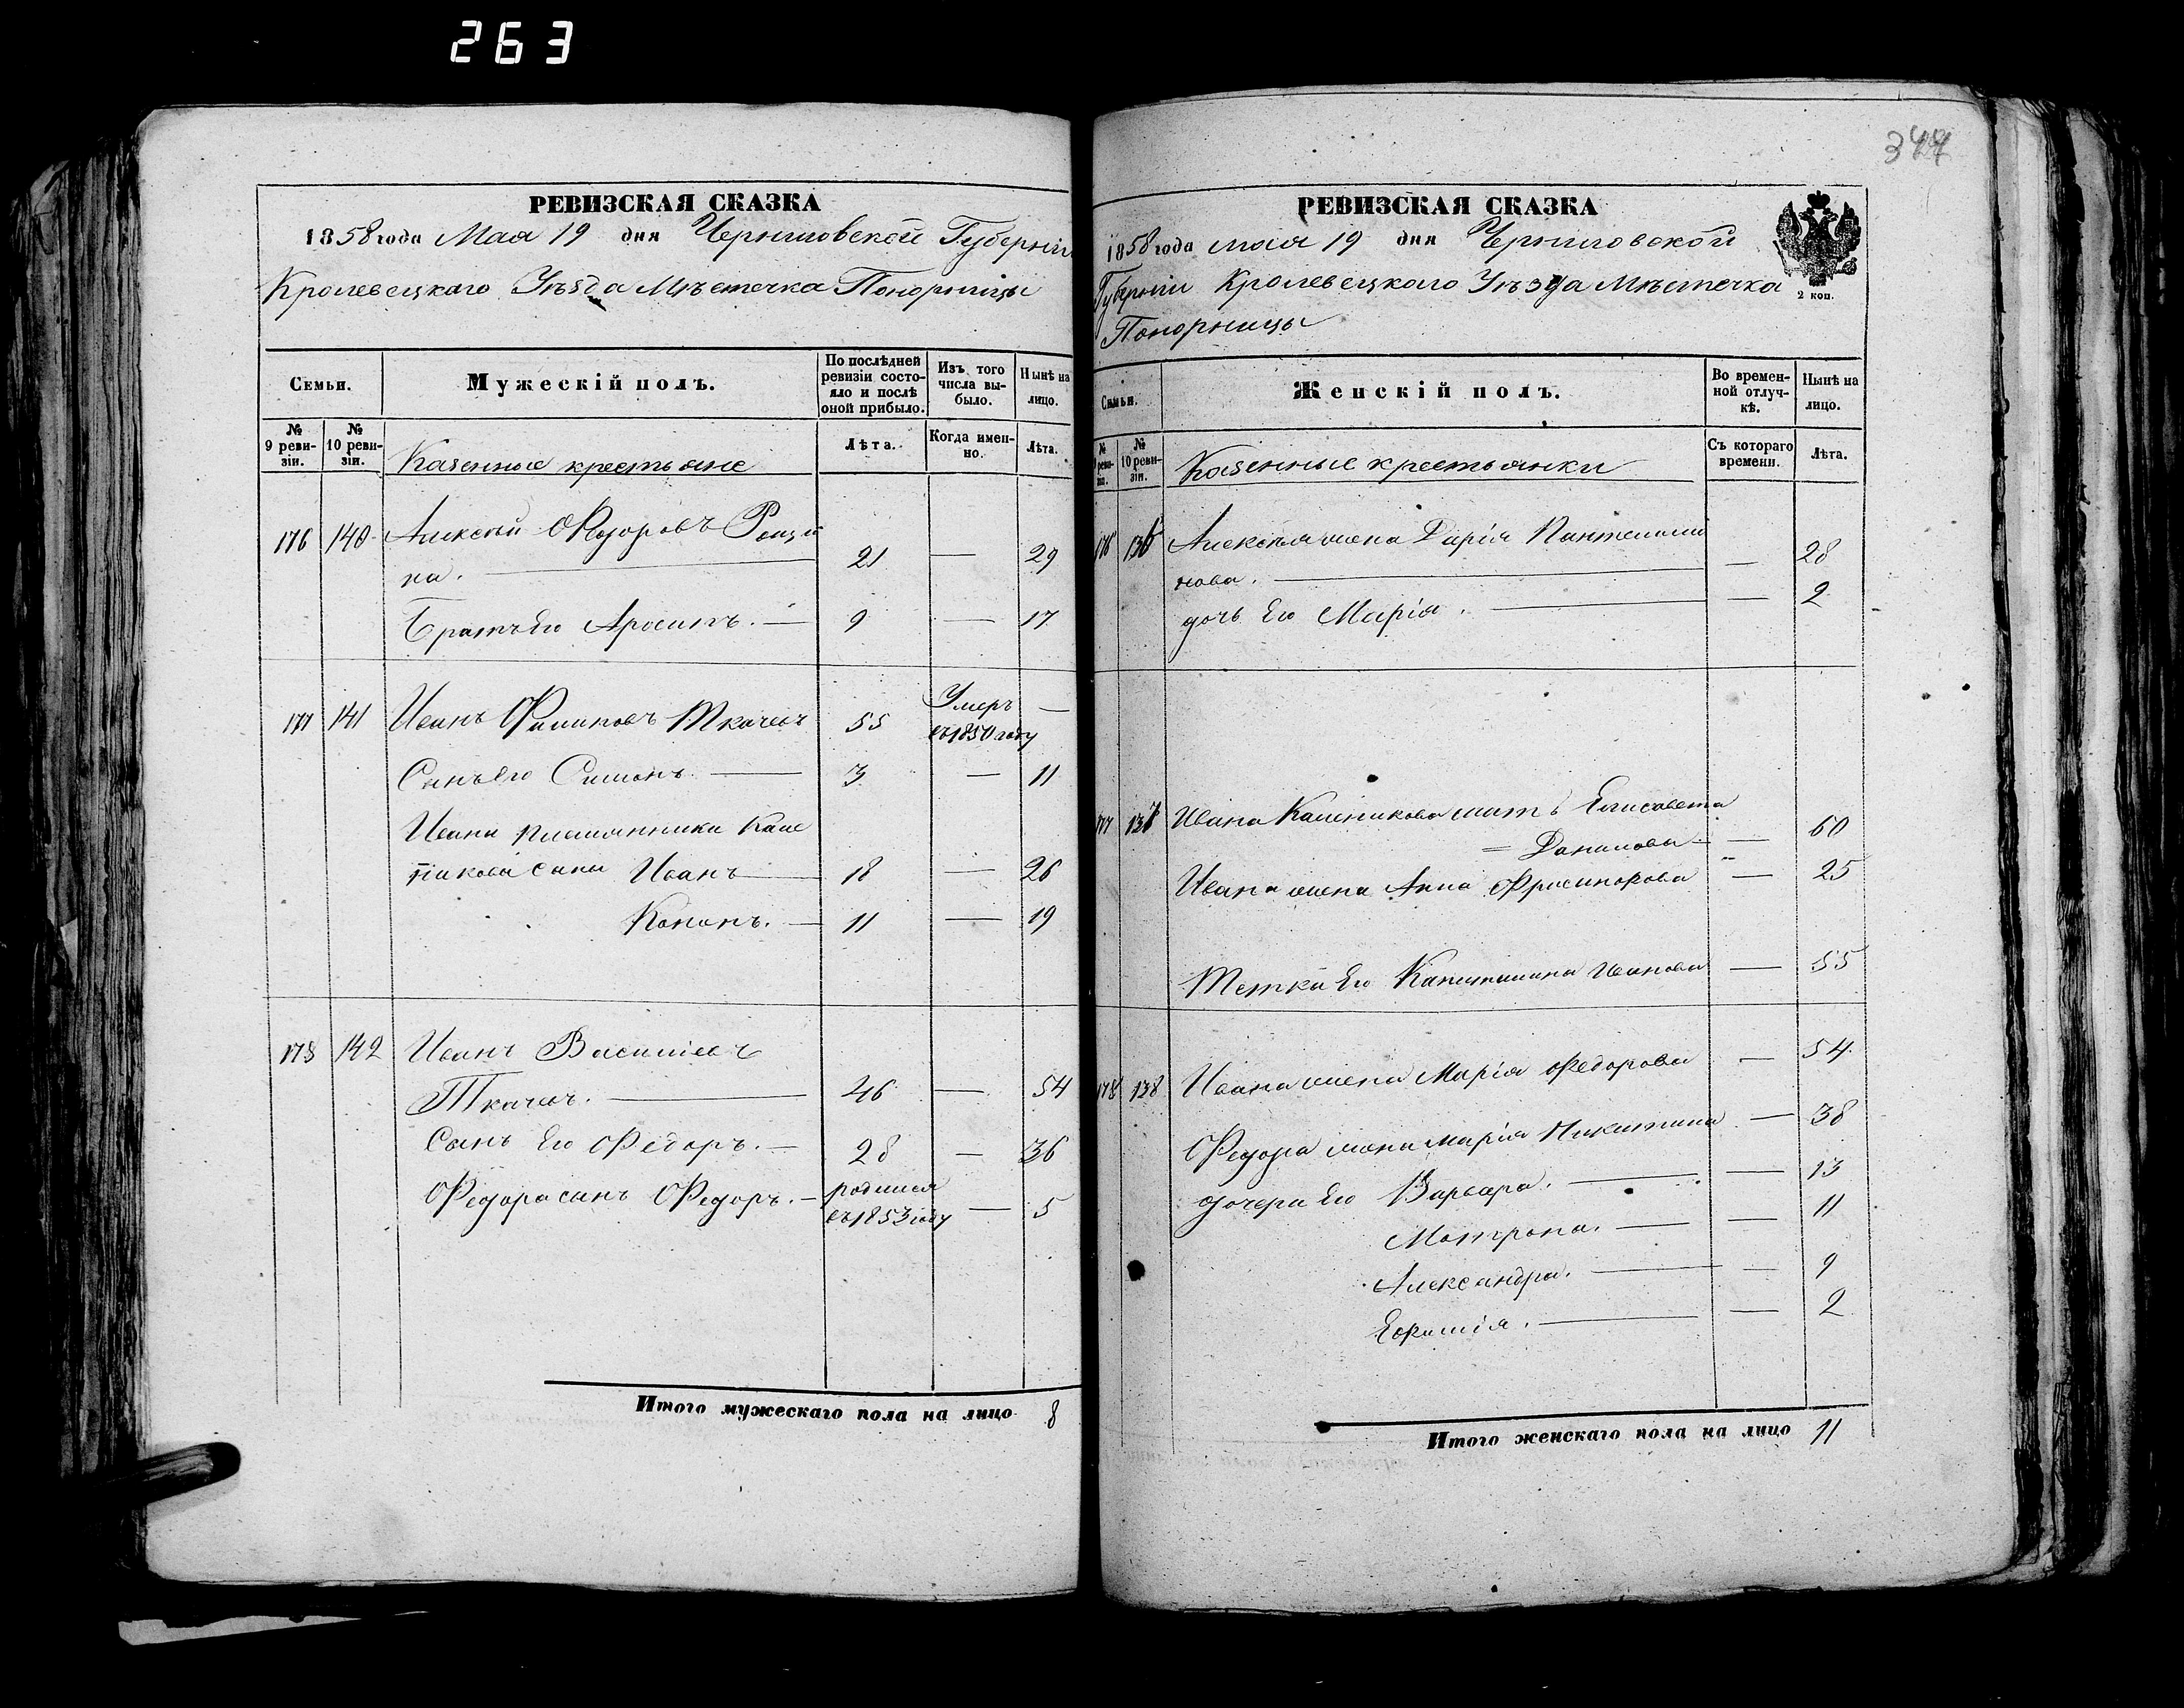 263
347
РЕВИЗСКАЯ СКАЗКА
1858 года Мая 19 дня Черниговской Губерніи
Кролевецкаго Уѣзда Мѣстечка Понорницы
Семьи.
Мужескій полъ.
По послѣдней ревизіи состояло и послѣ оной прибыло.
Изъ того числа выбыло.
Нынѣ на лицо.
№ 9 ревизіи.
№ 10 ревизіи.
Казенные крестьяне
Лѣта.
Когда именно.
Лѣта.
176 140 Алексѣй Федоровъ
ка. — 21 — 29
Братъ Его Архипъ. — 9 — 17
177 141 Иванъ Филиповъ Ткачъ 55 Умеръ въ 1850 году —
Сынъ Его Симонъ — 3 — 11
Ивана племянники Кале
никова сыни Иванъ — 18 — 26
Кононъ. — 11 — 19
178 142 Иванъ Василіевъ
Ткачъ. — 46 — 54
Сынъ Его Федоръ. — 28 — 36
Федора сынъ Федоръ. — родился въ 1853 году — 5
Итого мужескаго пола на лицо 8
РЕВИЗСКАЯ СКАЗКА
1858 года мая 19 дня Черниговской
Губерніи Кролевецкаго Уѣзда Мѣстечка
2 коп.
Понорницы
Семьи.
Женскій полъ.
Во временной отлучкѣ.
Нынѣ на лицо.
№ 9 ревизіи.
№ 10 ревизіи.
Казенные крестьянки
Съ котораго времени.
Лѣта.
176 136 Алексѣя жена Дарія Пантелимо
нова. — — 28
дочь Его Марія. — — 2
177 137 Ивана Каленикова мать Елисавета
= Данилова — — 60
Ивана жена Анна — 25
Тетка Его Капитолина Иванова — 55
178 138 Ивана жена Марія Федорова — 54
Федора жена Марія Никитина — 38
дочери Его Варвара. — — 13
Матрона. — — 11
Александра. — — 9
Евфимія. — — 2
Итого женскаго пола на лицо 11